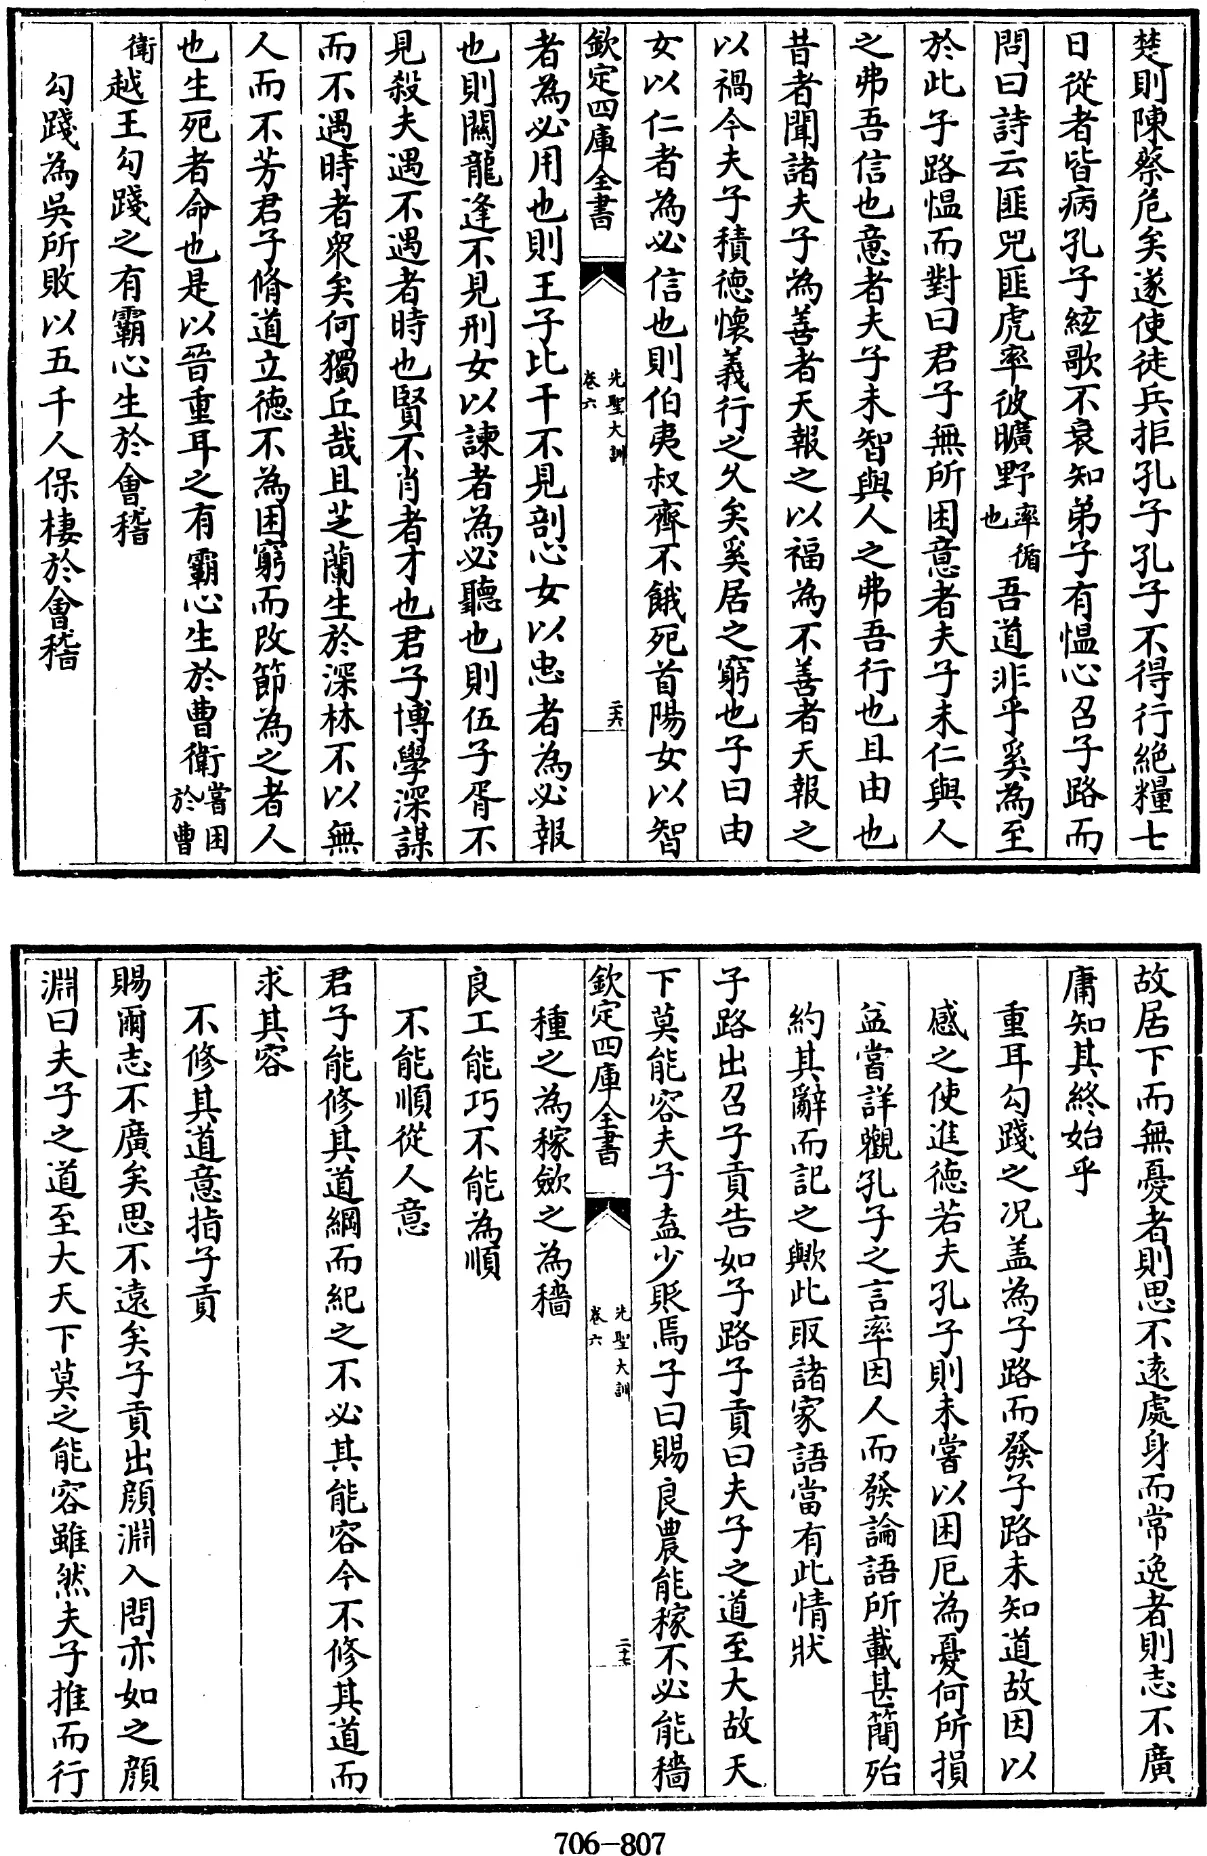 楚則陳蔡危矣遂使徒兵拒孔子孔子不得行絶糧七
日從者皆病孔子絃歌不衰知弟子有愠心召子路而
問曰詩云匪兕匪虎率彼曠野率循也吾道非乎奚為至
於此子路愠而對曰君子無所困意者夫子未仁與人
之弗吾信也意者夫子未智與人之弗吾行也且由也
昔者聞諸夫子為善者天報之以福為不善者天報之
以禍今夫子積德懷義行之久矣奚居之窮也子曰由
女以仁者為必信也則伯夷叔齊不餓死首陽女以智
欽定四庫全書
先聖大訓
卷六
二六
者為必用也則王子比干不見剖心女以忠者為必報
也則關龍逢不見刑女以諫者為必聽也則伍子胥不
見殺夫遇不遇者時也賢不肖者才也君子博學深謀
而不遇時者衆矣何獨丘哉且芝蘭生於深林不以無
人而不芳君子脩道立德不為困窮而改節為之者人
也生死者命也是以晉重耳之有霸心生於曹衛嘗困於曹
衛越王勾踐之有霸心生於會稽
勾踐為吳所敗以五千人保棲於會稽
故居下而無憂者則思不遠處身而常逸者則志不廣
庸知其終始乎
重耳勾踐之況盖為子路而發子路未知道故因以
感之使進德若夫孔子則未嘗以困厄為憂何所損
益嘗詳觀孔子之言率因人而發論語所載甚簡殆
約其辭而記之歟此取諸家語當有此情狀
子路出召子貢告如子路子貢曰夫子之道至大故天
下莫能容夫子盍少貶焉子曰賜良農能稼不必能穡
欽定四庫全書
先聖大訓
卷六
二十七
種之為稼斂之為穡
良工能巧不能為順
不能順從人意
君子能修其道綱而紀之不必其能容今不修其道而
求其容
不修其道意指子貢
賜爾志不廣矣思不遠矣子貢出顔淵入問亦如之顔
淵曰夫子之道至大天下莫之能容雖然夫子推而行
706-807